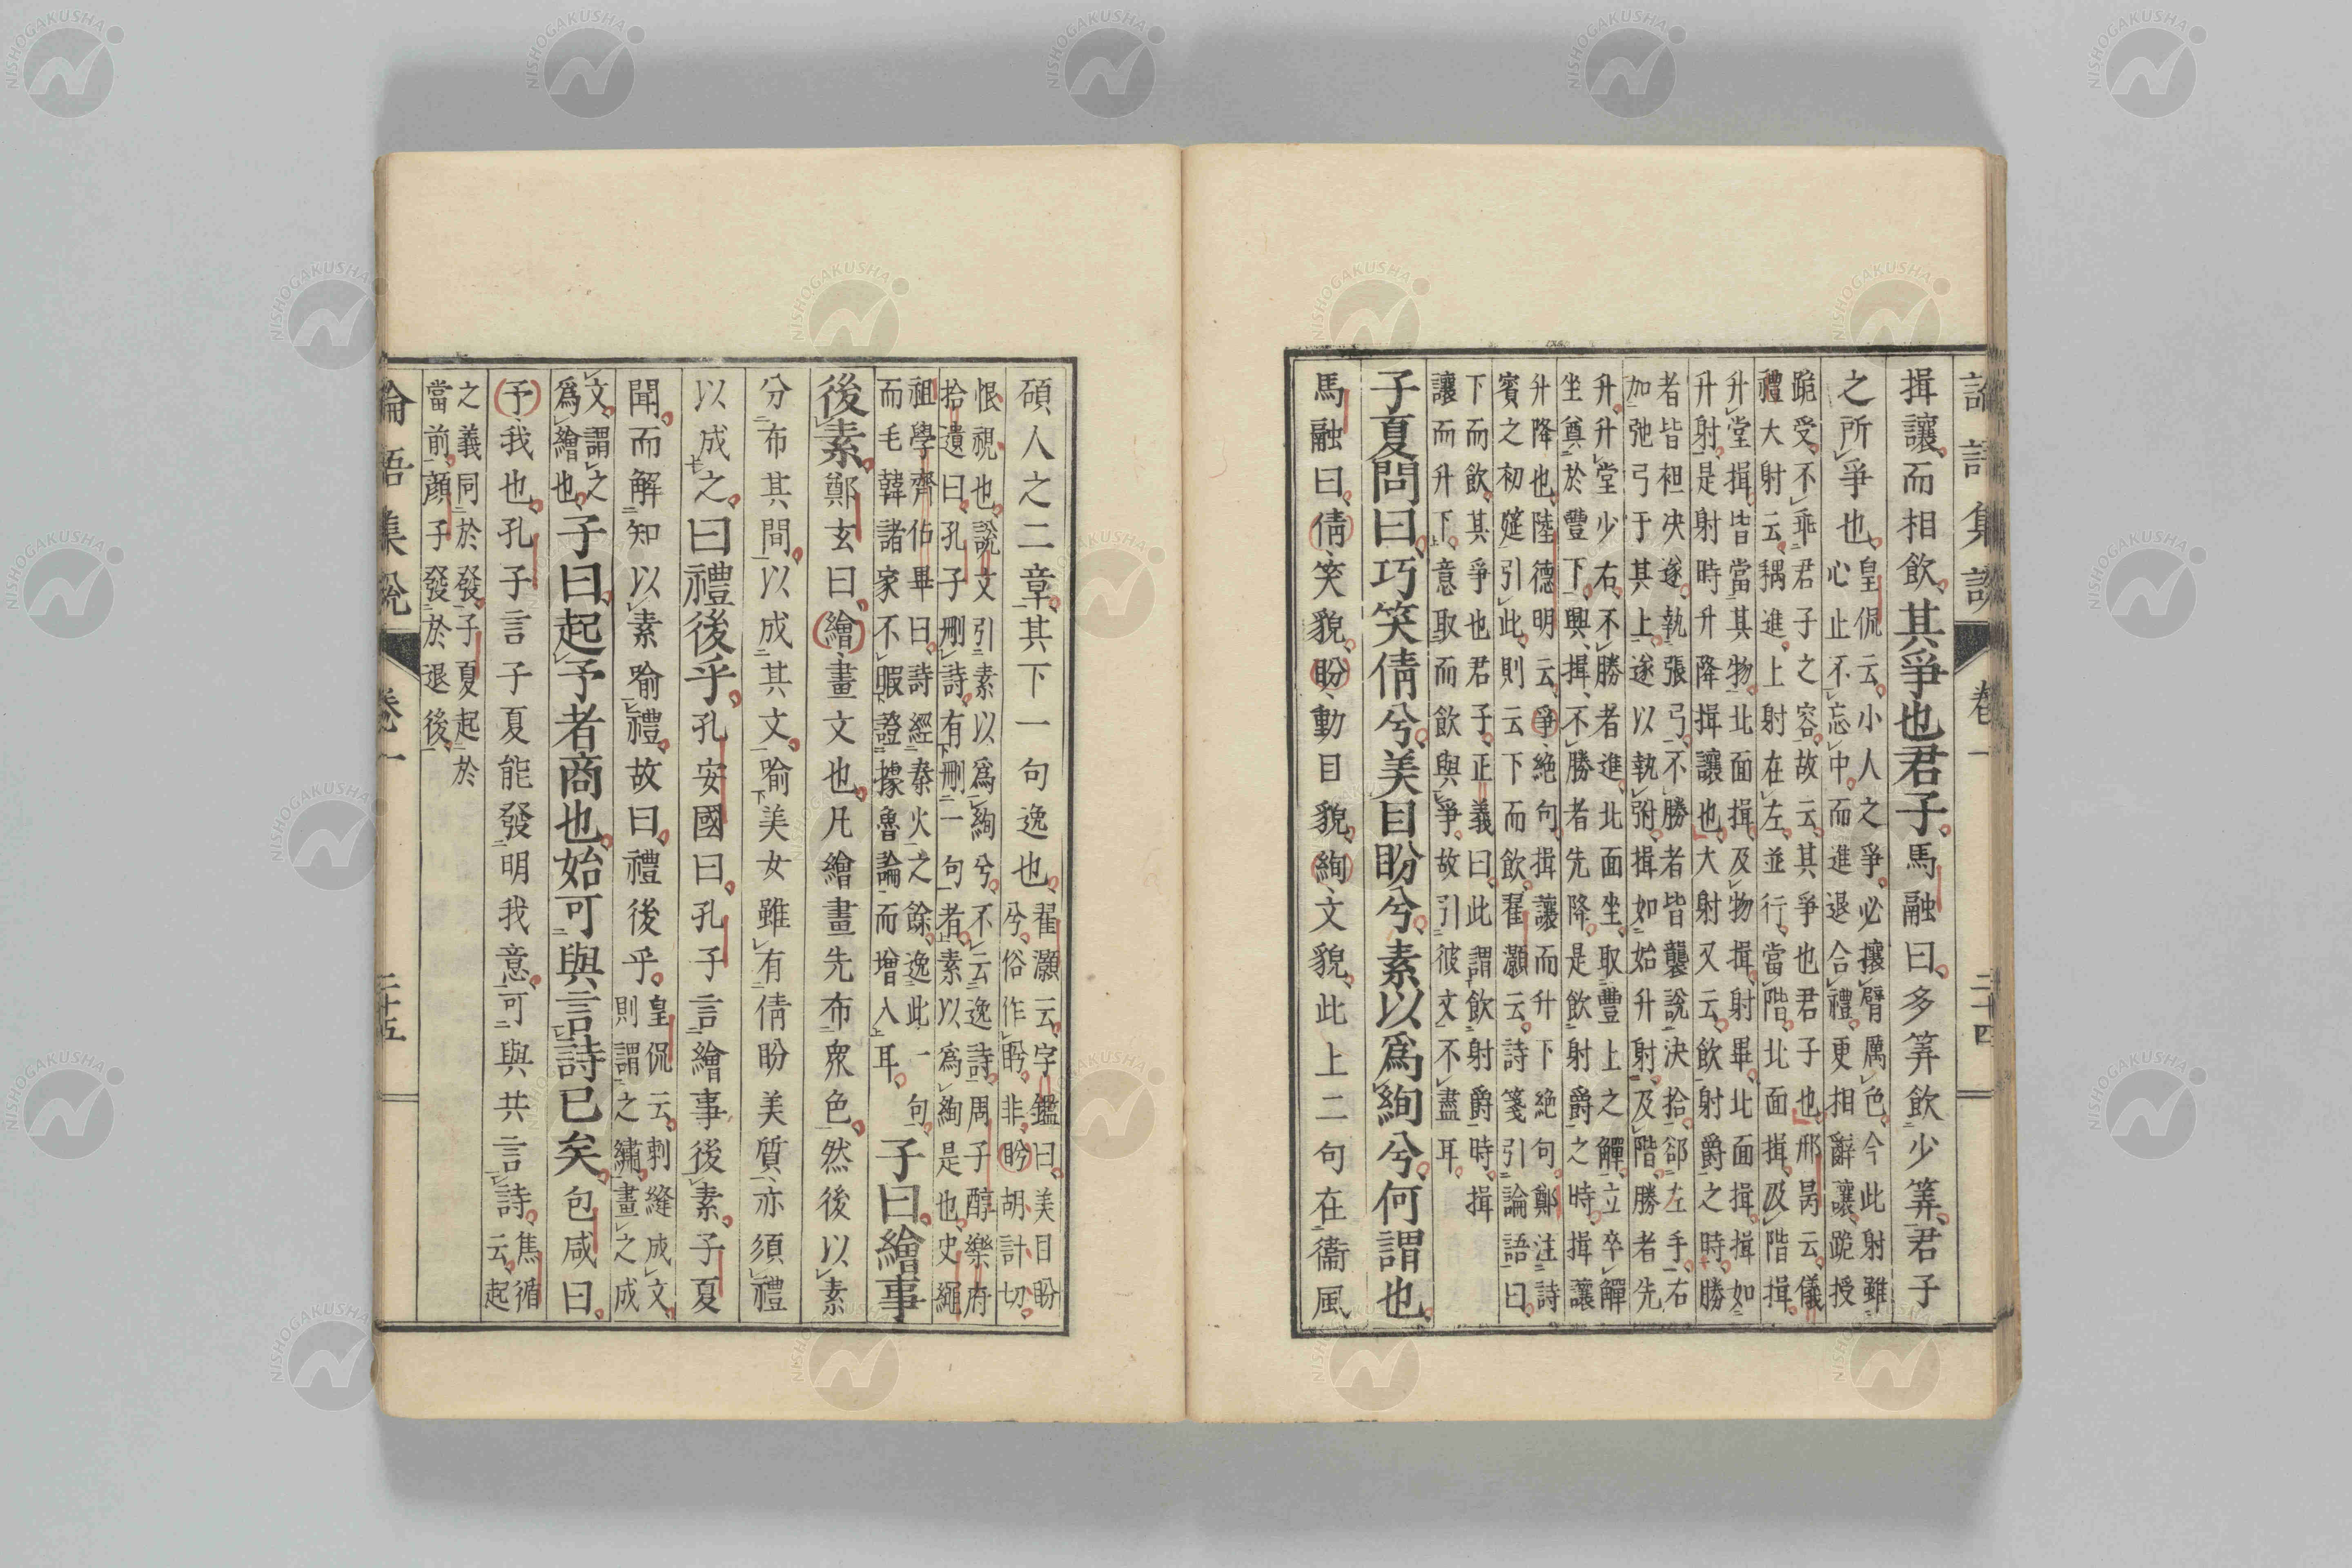 揖讓而相飲其爭也君子馬融曰多筭飲少筭君子
之所爭也皇侃云小人之爭必攘臂厲色今此射雖
心止不忘中而進退合禮更相辭讓跪授
跪受不乖君子之容故云其爭也君子也邢昺云儀
禮大射云耦進上射在左並行當階北面揖及階揖
升堂揖皆當其物北面揖及物揖射畢北面揖揖如
升射是射時升降揖讓也大射又云飲射爵之時勝
者皆袒决遂執張弓不勝者皆襲說決拾郤左手右
加弛弓于其上遂以執弣揖如始升射及階勝者先
升升堂少右不勝者進北面坐取豐上之觶立卒觶
坐奠於豐下興揖不勝者先降是飲射爵之時揖讓
升降也陸德明云爭絶句揖讓而升下絶句鄭注詩
賓之初筵引此則云下而飲翟灝云詩箋引論語曰
下而飲其爭也君子正義曰此謂飲射爵時揖
讓而升下意取而飲與爭故引彼文不盡耳
子夏問曰巧笑倩兮美目盼兮素以爲絢兮何謂也
馬融曰倩笑貌盼動目貌絢文貌此上二句在衞風
論語集說 卷一 二十四
碩人之二章其下一句逸也翟灝云字鑑曰美目盼
兮俗作盻非盻胡計切
恨視也說文引素以爲絢兮不云逸詩周子醇樂府
拾遺曰孔子刪詩有刪一句者素以爲絢是也史繩
祖學齊佔畢曰詩經秦火之餘逸此一句
而毛韓諸家不暇證據魯論而增入耳子曰繪事
後素鄭玄曰繪畫文也凡繪畫先布衆色然後以素
分布其間以成其文喻美女雖有倩盼美質亦須禮
以成之曰禮後乎孔安國曰孔子言繪事後素子夏
聞而解知以素喻禮故曰禮後乎皇侃云刺縫成文
則謂之繡畫之成
文謂之
爲繪也子曰起予者商也始可與言詩已矣包咸曰
予我也孔子言子夏能發明我意可與共言詩焦循
云起
之義同於發子夏起於
當前顏子發於退後
論語集說 卷一 二十五